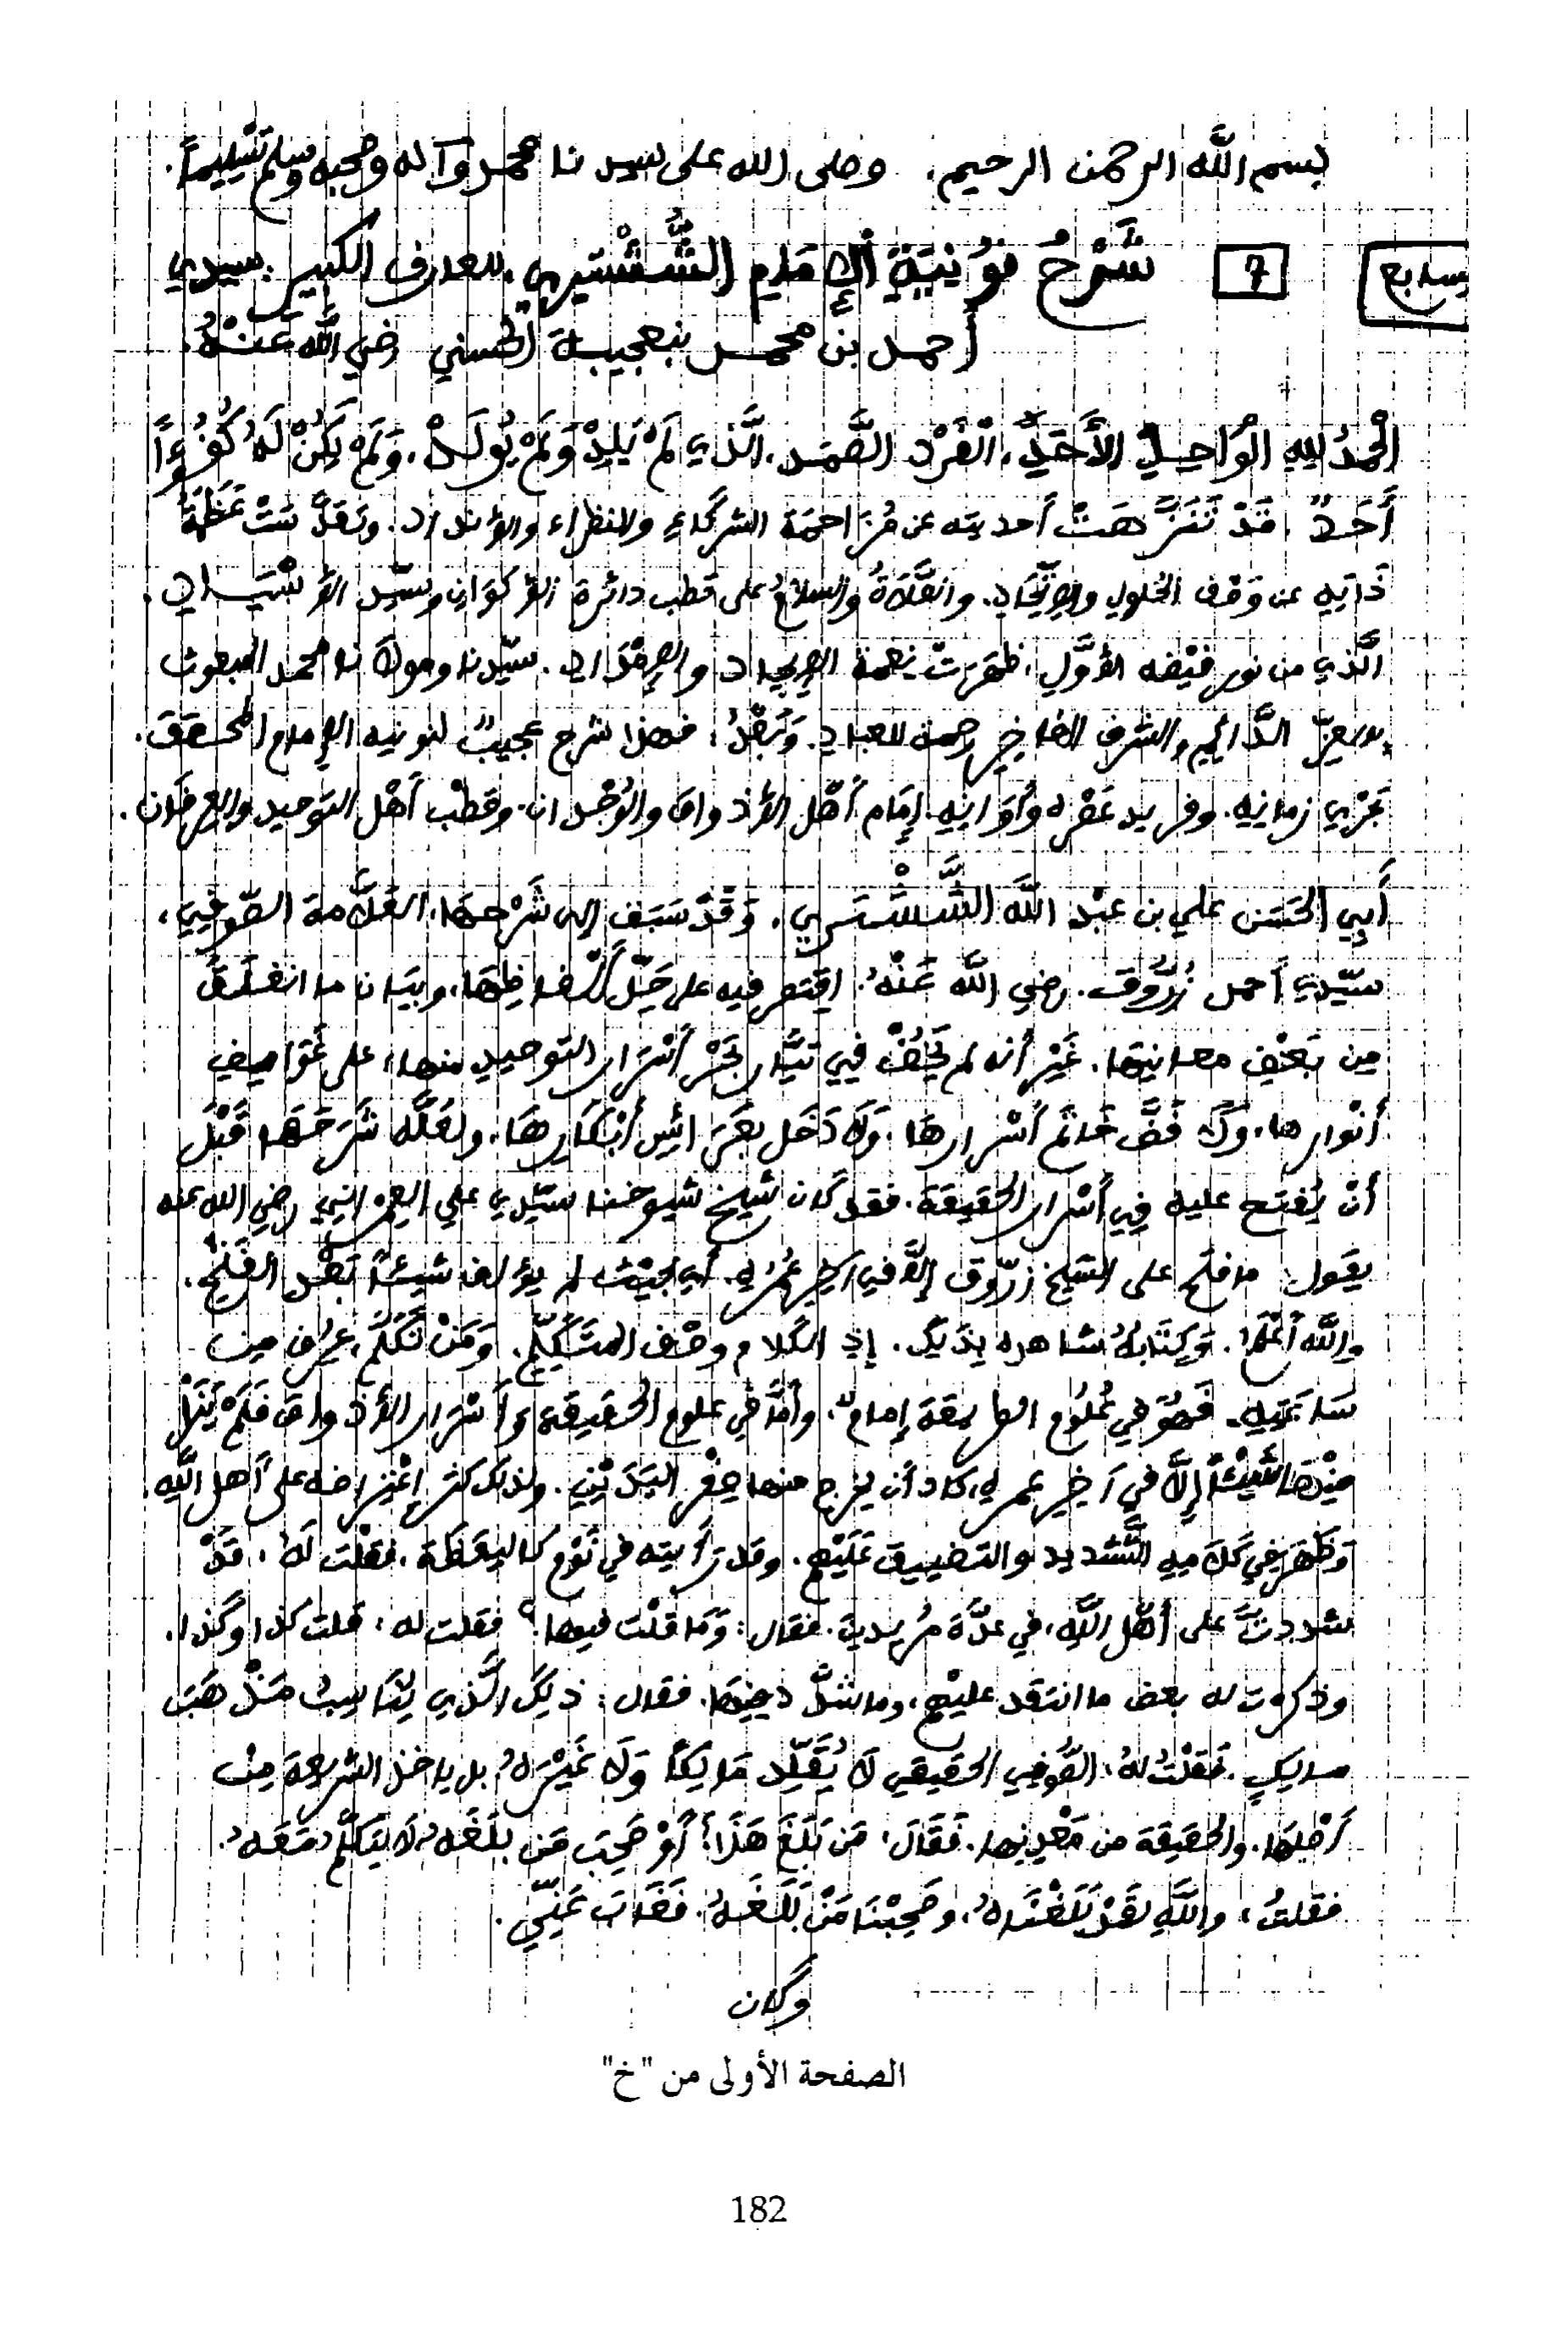 بسم اللَّه الرحمن الرحيم. وصلى الله على سيدنا محمد وآله وصحبه وسلم تَسْلِيماً.
سابع 7 شَرْحُ نُونِيَةِ الإِمَامِ الشُّشْتَرِي. للعارف الكبير. سيدي
أحمد بن محمد بنعجيبة الحسني رضي اللَّه عَنْهُ.
الْحَمْدُ لِلهِ الْوَاحِدِ الأَحَدِ، الْفَرْدِ الصَّمَدِ. الَّذِي لَمْ يَلِدْ وَلَمْ يُولَدْ، وَلَمْ يَكُنْ لَهُ كُفُؤاً
أَحَدٌ. قَدْ تَنَزَّهَتْ أحديته عن مُزَاحَمَةِ الشركاءِ والنظراء والأنداد. وتقدَّسَتْ عَظَمَةُ
ذَاتِهِ عن وَصْفِ الحُلولِ والإتِّحَادِ. والصَّلَاةُ والسلامُ على قطب دائرة الأَكْوَانِ وسيّد الأَسْيَادِ.
الَّذي من نور فيْضِه الأوَّلِ، ظهَرَتْ نعمة الإيجاد والإمْدَادِ. سيّدنا ومولانا محمد المبعوث
بالعِزّ الدَّائِمِ والشرف الفاخِرِ رحمة للعبادِ. وَبَعْدُ: فهذا شرح عجيبٌ لنونية الإمام المحقق.
بَحْرِي زمانِهِ. وفريد عَصْرِهِ وأَوَانِهِ. إمَام أَهْل الأذواق والوُجْدان. وقطْب أَهْل التوحيد والعرفَان.
أَبِي الحَسَن علي بن عبْد اللَّه الشُّشْتَرِي. وَقَدْ سَبَقَ إلى شَرْحِهَا، العَلَّامة الصّوفِي،
سيّدي أحمد زَرُّوق. رضي اللَّه عَنْهُ. اقتصر فيه على حَلِّ أَلْفاظِهَا، وبيَان ما انغلَقَ
مِن بَعْضِ معانيهَا. غَيْرَ أنه لم يَخُضْ فِي تيَّار بَحْر أَسْرَار التوحيدِ منها، على غَوَامِضِ
أنْوارِها، وَلَا فَضَّ خَاتَم أَسْرارِهَا، وَلَا دَخَل بِعَرَائِسِ أَبْكَارِهَا، ولعَلَّه شَرَحَهَا قَبْلَ
أنْ يُفتح عليه فِي أَسْرار الحَقيقَة. فقد كان شيخ شيوخنا سيّدي علي العِمْرانِي رضي الله عنه
يقول: ما فُتح على الشيخ زرّوق إلَّا في آخر عُمْرِهِ. أي بحيْث لم يؤلف شيئاً بَعْد الفَتْحِ.
واللَّه أَعْلَمُ. وَكِتَابُهُ شاهد بِذَلِكَ. إذ الكَلام وصْف المتَكَلِّمِ. وَمَنْ تَكَلَّمَ، عُرِفَ مِن
سَاعَتِهِ. فَهُوَ في عُلُومِ الطريقة إِمامٌ، وأمَّا في علوم الحَقيقَةِ وأَسْرَارِ الأذواق فَلَمْ يَنَلْ
مِنْهَا شَيْئاً إلَّا في آخِرِ عمرِهِ، كاد أن يخرج منها صِفْرَ اليَدَيْنِ. ولذلك كثر اعْتِراضُه على أَهل اللَّهِ.
وَظَهَرَ فِي كَلَامِهِ التَّشْديد والتضييق عَلَيْهِم. وقد رَأيته في نَوْمٍ كاليَقَظَةِ، فقُلْتُ لَهُ، قَدْ
شددتَ على أَهْل اللَّهِ، في عدَّة مُرِيدِيهَ. فقال: وَمَا قُلْتُ فيها؟ فقلت له: قلت كذا وكذا.
وذكرت له بعض ما انتقد عليْهِم، وما شدَّد فِيهَا. فقال: ذلِكَ الَّذِي يُنَاسِبُ مَذْهَبَ
مالِكٍ. فَقُلْتُ لهُ: الصُّوفِي الحَقيقي لَا يُقَلِّد مَالِكاً وَلَا غَيْرَهُ، بل ياخذ الشريعة مِنْ
أَصْلِهَا. والحَقيقَة من مَعْدِنِها. فَقَالَ، مَن بَلَغَ هَذَا؟ أَوْ صَحِبَ مَن بلَغَهُ لَا يُتكَلَّمُ مَعَهُ.
فقلتُ، واللَّهِ لقَدْ بَلَغْنَاهُ، وصَحِبْنَا مَنْ بَلَغَهُ. فَغَابَ عَنِّي.
وكان
الصفحة الأولى من "خ"
182